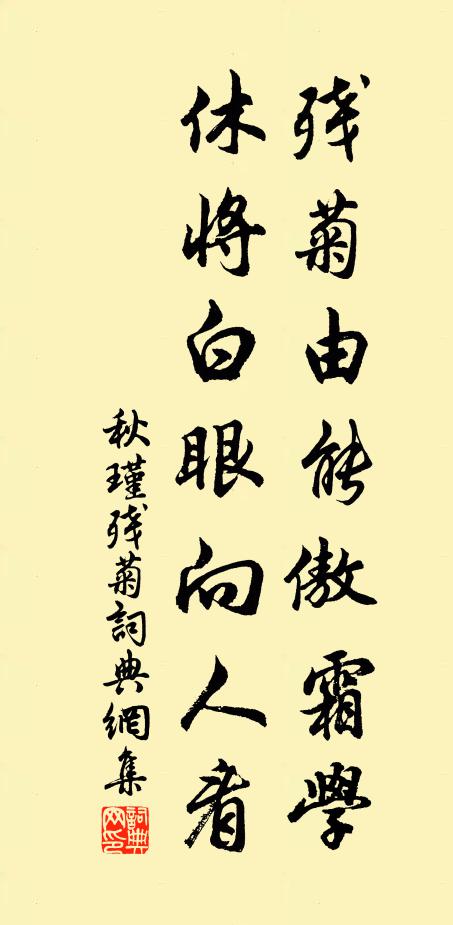 残菊由能傲霜學
休將白眼向人看
秋瑾残菊詞典網集
詞典网印